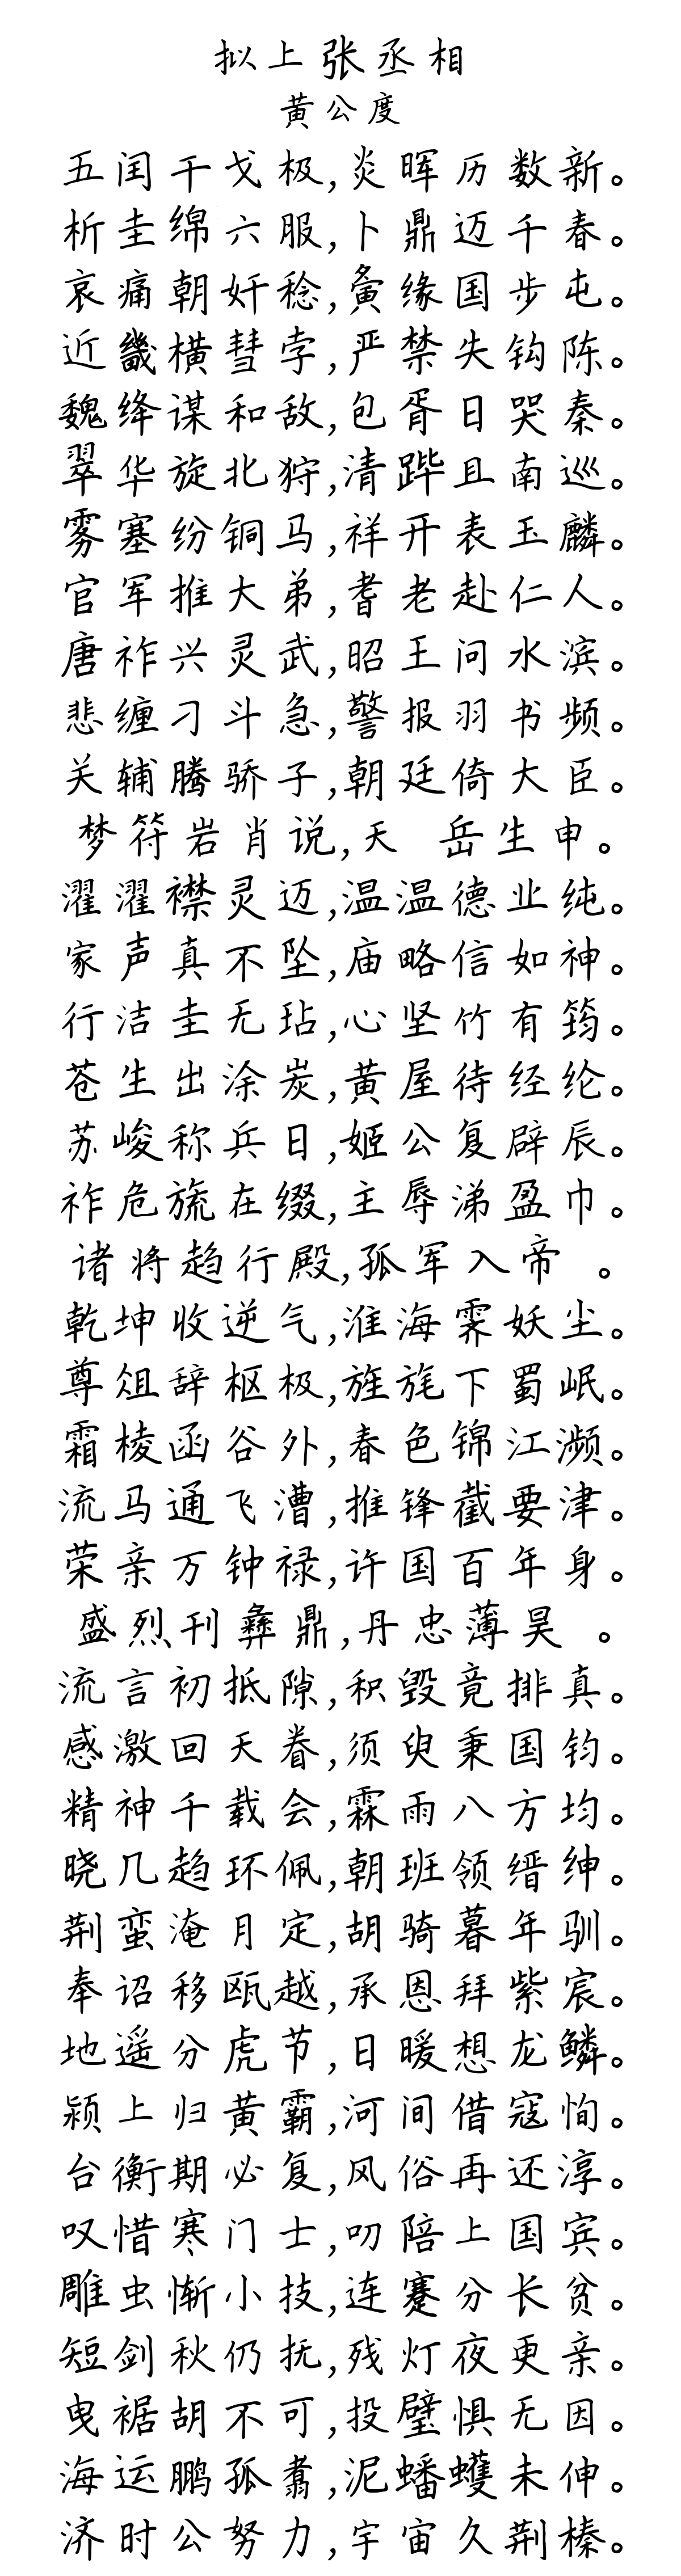 拟上张丞相
黄公度
五闰干戈极,炎晖历数新。
析圭绵六服,卜鼎迈千春。
哀痛朝奸稔,夤缘国步屯。
近畿横彗孛,严禁失钩陈。
魏绛谋和敌,包胥日哭秦。
翠华旋北狩,清跸且南巡。
雾塞纷铜马,祥开表玉麟。
官军推大弟,耆老赴仁人。
唐祚兴灵武,昭王问水滨。
悲缠刁斗急,警报羽书频。
关辅腾骄子,朝廷倚大臣。
梦符岩肖说,天 岳生申。
濯濯襟灵迈,温温德业纯。
家声真不坠,庙略信如神。
行洁圭无玷,心坚竹有筠。
苍生出涂炭,黄屋待经纶。
苏峻称兵日,姬公复辟辰。
祚危旒在缀,主辱涕盈巾。
诸将趋行殿,孤军入帝 。
乾坤收逆气,淮海霁妖尘。
尊俎辞枢极,旌旄下蜀岷。
霜棱函谷外,春色锦江濒。
流马通飞漕,推锋截要津。
荣亲万钟禄,许国百年身。
盛烈刊彝鼎,丹忠薄昊 。
流言初抵隙,积毁竟排真。
感激回天眷,须臾秉国钧。
精神千载会,霖雨八方均。
晓几趋环佩,朝班领缙绅。
荆蛮淹月定,胡骑暮年驯。
奉诏移瓯越,承恩拜紫宸。
地遥分虎节,日暖想龙鳞。
颍上归黄霸,河间借寇恂。
台衡期必复,风俗再还淳。
叹惜寒门士,叨陪上国宾。
雕虫惭小技,连蹇分长贫。
短剑秋仍抚,残灯夜更亲。
曳裾胡不可,投璧惧无因。
海运鹏孤翥,泥蟠蠖未伸。
济时公努力,宇宙久荆榛。